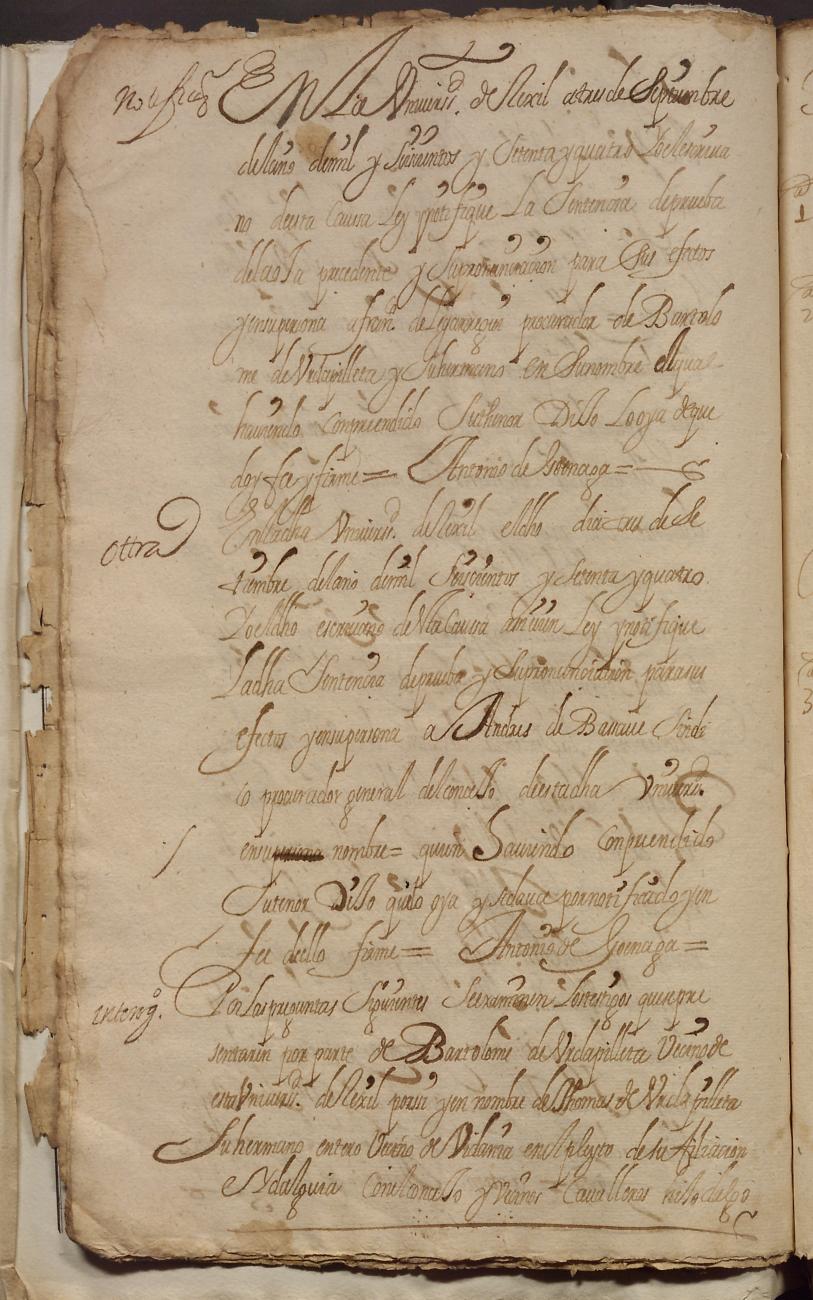 Notificaon En la Vniuersd. de Rexil a tres de Septiembre
del año de mil y Seiscientos y Setenta y quatro Yo el escriua
no de esta Causa Ley y notifique La Sentencia de prueba
de la oja precedente y Su pronunciacion para Sus efectos
y en su persona a fran.co de procurador de Bartolo
me de Vrdapilleta y Su hermano en Su nombre el qual
hauiendo Conprendido Su thenor Dixo Lo oya de que
doy fee y firme = Antonio de Goenaga =
Ottra En la dha Vniuersd. de Rexil el dho dia tres de Se
tiembre del año de mil Seiscientos y Setenta y quatro
Yo el dho escriuano de la Causa Ley y notifique
La dha Sentencia de prueba y Su pronunciacion para sus
efectos y en su persona a Andres de Sindi
co procurador general del concejo de esta dha Vniuersd.
en su nombre = quien Hauiendo Conprendido
Su tenor Dixo que lo oya y se daua por notificado y en
fee de ello firme = Antonio de Goenaga =
Interog.o Por Las preguntas Siguientes Se examinen Los testigos que se pre
sentaren por parte de Bartolome de Vrdapilleta Vecino de
esta Vniuersd. de Rexil por si y en nombre de Thomas de Vrdapilleta
Su hermano entero Vecino de Vidania en el pleyto de su filiacion
E ydalguia Con el concejo y Vecinos Caualleros hijosdalgo